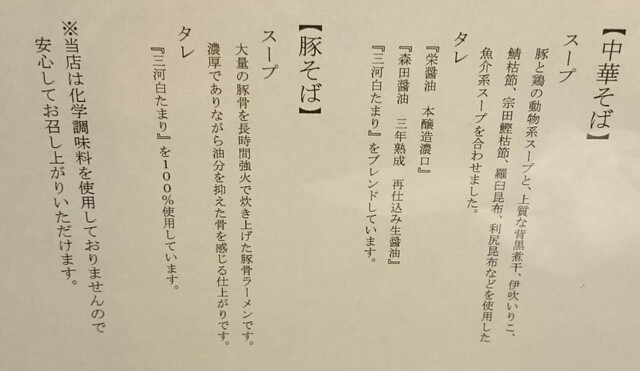 【中華そば】
スープ
豚と鶏の動物系スープと、上質な背黒煮干、伊吹いりこ、
鯖枯節、宗田鰹枯節、羅臼昆布、利尻昆布などを使用した
魚介系スープを合わせました。
タレ
『栄醤油 本醸造濃口』
『森田醤油 三年熟成 再仕込み生醤油』
『三河白たまり』をブレンドしています。
【豚そば】
スープ
大量の豚骨を長時間強火で炊き上げた豚骨ラーメンです。
濃厚でありながら油分を抑えた骨を感じる仕上がりです。
タレ
『三河白たまり』を100%使用しています。
※当店は化学調味料を使用しておりませんので
安心してお召し上がりいただけます。